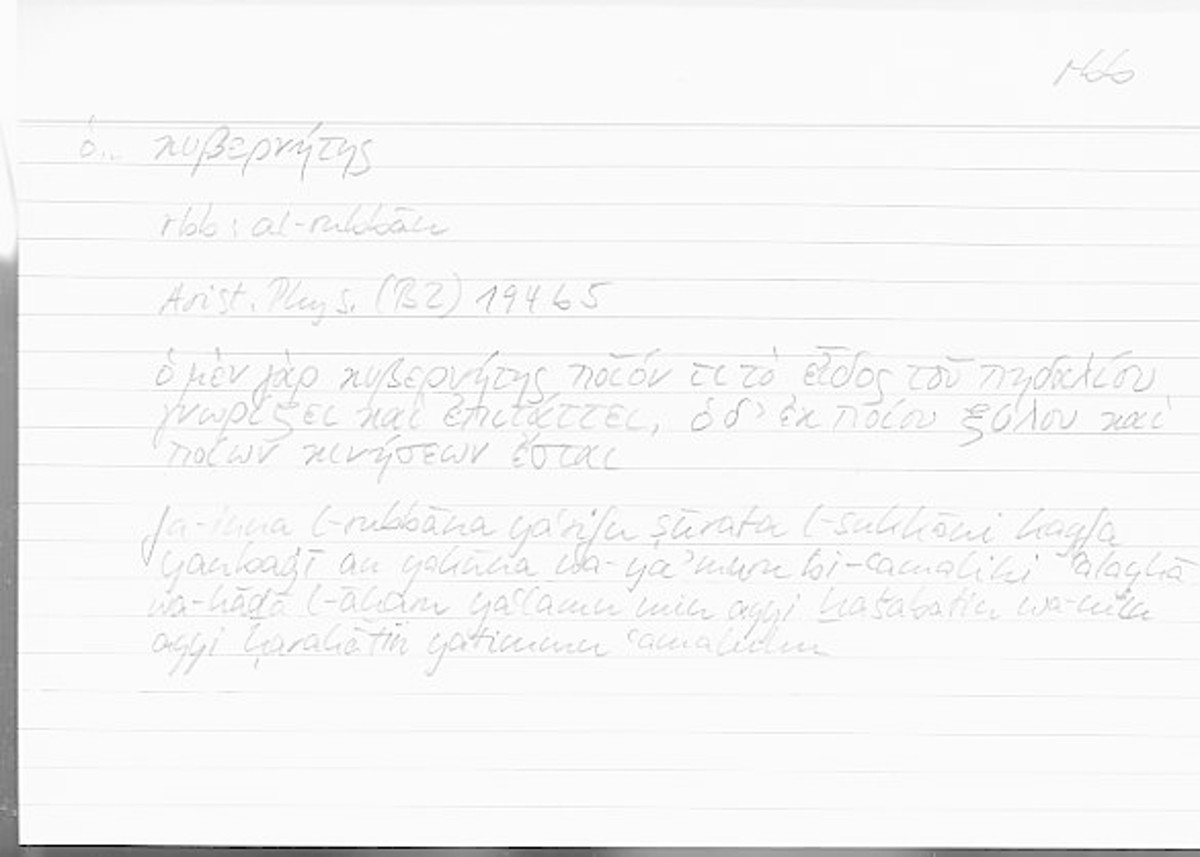 rbb
ὁ.. κυβερνήτης
rbb: al-rubbān
Arist. Phys. (B2) 194b5
ὁ μὲν γὰρ κυβερνήτης ποῖόν τι τὸ εἶδος τοῦ πηδαλίου
γνωρίζει καὶ ἐπιτάττει, ὁ δ' ἐκ ποίου ξύλου καὶ
ποίων κινήσεων ἔσται
fa-inna l-rubbāna yaʿrifu ṣūrata l-sukkāni kayfa
yanbaġī an yakūna wa-yaʾmuru bi-ʿamalihi ʿalayhā
wa-hāḏā l-āḫaru yaʿlamu min ayyi ḫašabatin wa-min
ayyi ḥarakātin yatimmu ʿamaluhu